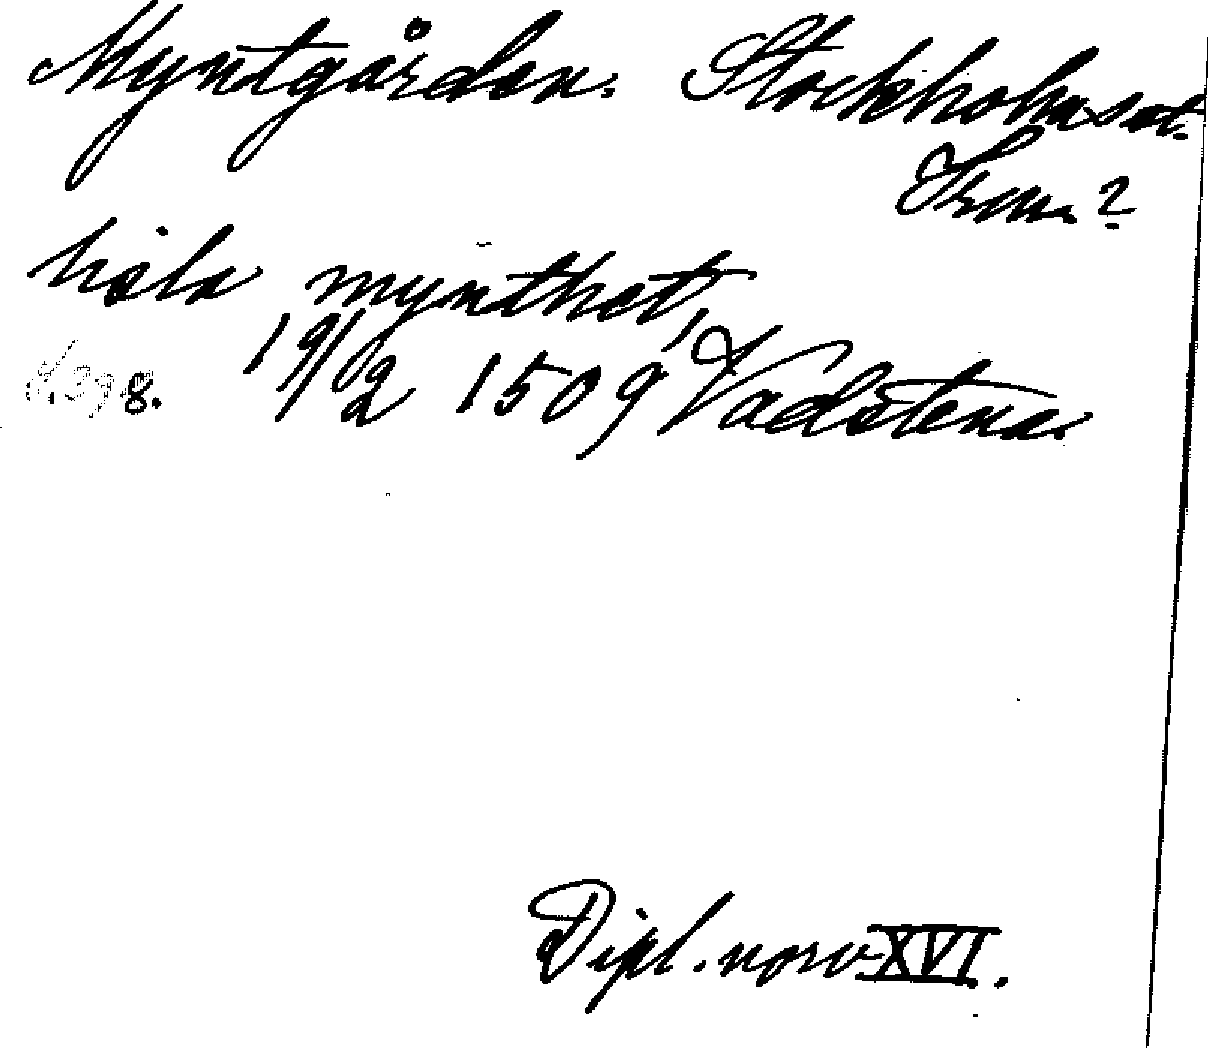 Myntgården. Stockholms st.
Frem.?
hele mynthet,
s. 398. 19/2 1509 Vadstena.
Dipl. norv. XVI.